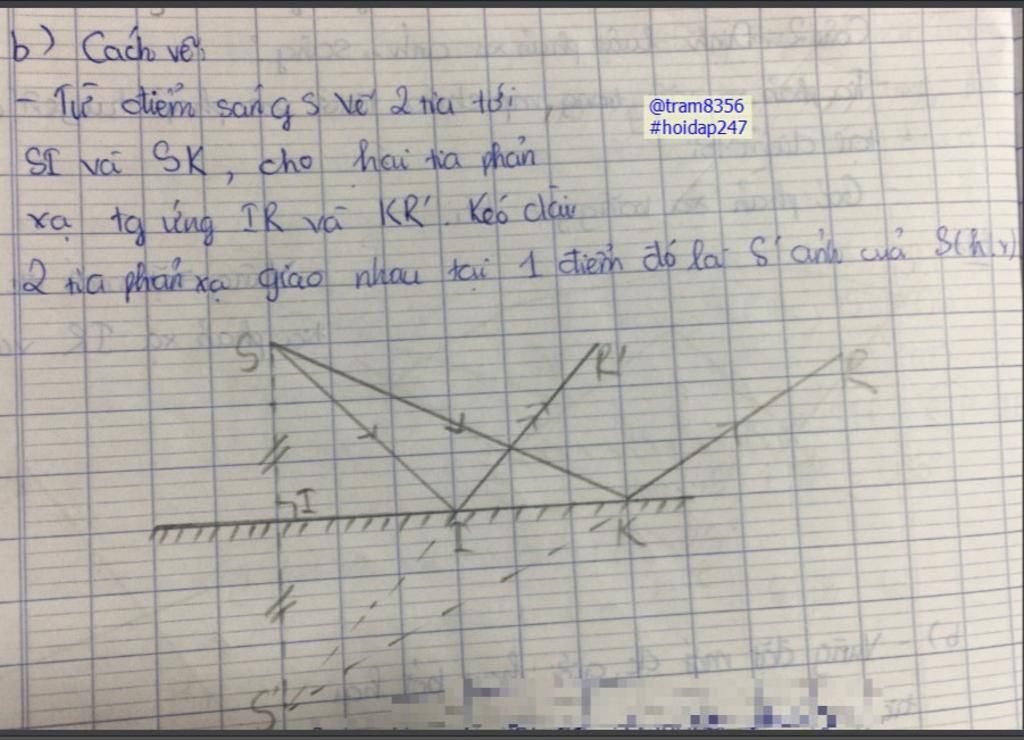 b) Cách vẽ:
- Từ điểm sáng S vẽ 2 tia tới
@tram8356
#hoidap247
SI và SK, cho hai tia phản
xạ tg ứng IR và KR'. Kéo dài
2 tia phản xạ giao nhau tại 1 điểm đó là S' ảnh của S (h.v)
S
R'
R
I
I
K
S'